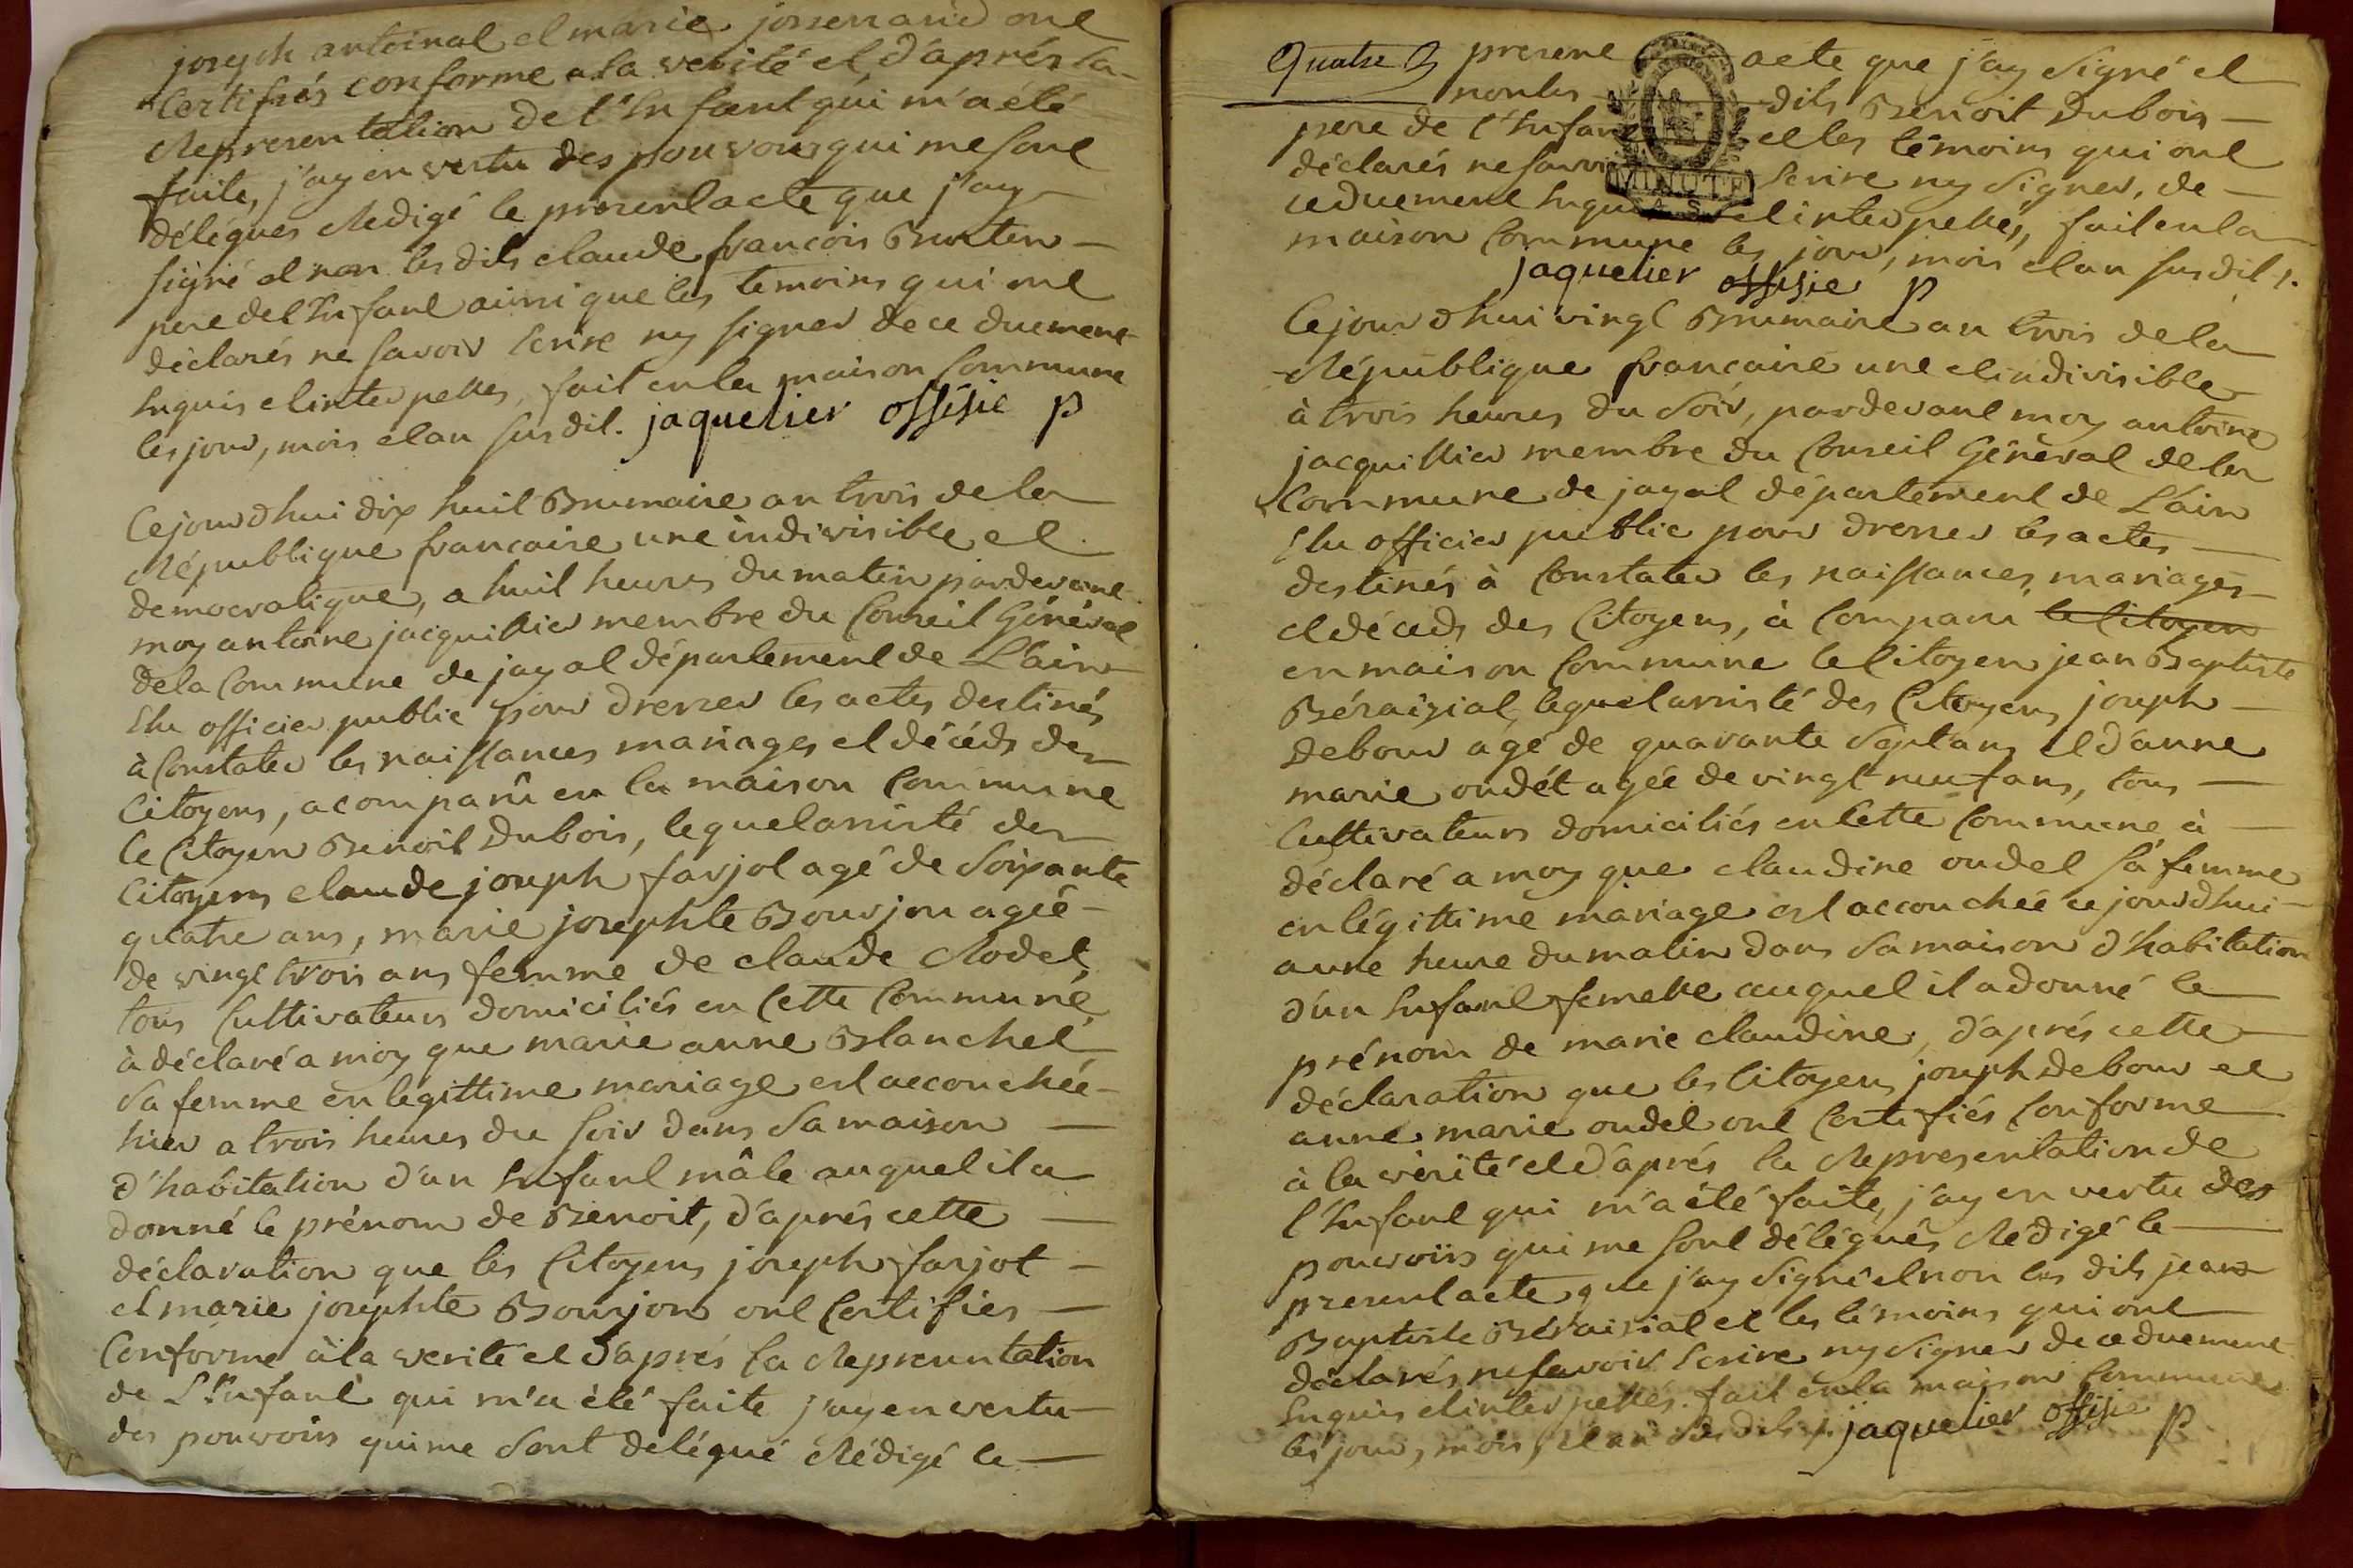 joseph antoinal et marie josserand ont
Certifiés conforme a la verité et d'aprés la
Representation de l'Enfant qui m'a été
faite, j'ay en vertu des pouvoirs qui me sont
délégués Redigé le present acte que j'ay
signé et non les dits claude françois
pere de l'Enfant ainsi que les temoins qui ont
déclarés ne savoir Ecrire ny signer de ce duement
Enquis et interpellés, fait en la maison Commune
les jour, mois et an sus dit. jaquelier offisie p
Cejourd'hui dix huit Brumaire an trois de la
République francaise une indivisible et
democratique, a huit heures du matin pardevant
moy antoine jacquillier membre du Conseil Général
de la Commune de jayat département de L'ain
Elu officier public pour dresser les actes destinés
à Constater les naissances mariages et décéds des
Citoyens, a comparû en la maison Commune
le Citoyen Benoit Dubois, lequel assisté des
Citoyens claude joseph farjot agé de Soixante
quatre ans, marie josephte Bourjon agée
de vingt trois ans femme de claude Rodet
tous Cultivateurs domiciliés en Cette Commune
à déclaré a moy que marie anne Blanchet
sa femme en legittime mariage est accouchée
hier a trois heures du soir dans sa maison
d'habitation d'un Enfant mâle auquel il a
donné le prénom de Benoit, d'aprés cette
déclaration que les Citoyens joseph farjot
et marie josephte Bourjon ont Certifiés
Conforme à la verité et d'aprés la Representation
de L'Enfant qui m'a été faite j'ay en vertu
des pouvoirs qui me sont delégué Rédigé le
Quatre present acte que j'ay signé et
non les dits Benoit Dubois
pere de l'Enfant et les témoins qui ont
déclarés ne savoir Ecrire ny signer, de
MINUTE
ce duement Enquis et interpellés, fait en la
maison Commune les jour, mois et an sus dit.
jaquelier offisie p
Cejourd'hui vingt Brumaire an trois de la
République francaise une et indivisible
à trois heures du soir, pardevant moy antoine
jacquillier membre du Conseil Général de la
Commune de jayat département de L'ain
Elu officier public pour dresser les actes
destinés à Constater les naissances mariages
et décéds des Citoyens, à Comparu le Citoyen
en maison Commune le Citoyen jean Baptiste
Béraizial, lequel assisté des Citoyens joseph
Debour agé de quarante sept ans et d'anne
marie oudét agée de vingt neuf ans, tous
Cultivateurs domiciliés en Cette Commune à
déclaré a moy que claudine oudet sa femme
en légittime mariage est accouchée ce jourd'hui
a une heure du matin dans sa maison d'habitation
d'un Enfant femelle auquel il a donné le
prénom de marie claudine, d'aprés cette
déclaration que les Citoyens joseph debour et
anne marie oudet ont Certifiés Conforme
à la vérité et d'aprés la Representation de
l'Enfant qui m'a été faite, j'ay en vertu des
pouvoirs qui me sont délégués Redigé le
present acte que j'ay signé et non les dits jean
Baptiste Béraizial et les témoins qui ont
déclarés ne savoir Ecrire ny signer de ce duement
Enquis et interpellés. fait en la maison Commune
les jour, mois, et an sus dits. jaquelier offisie p